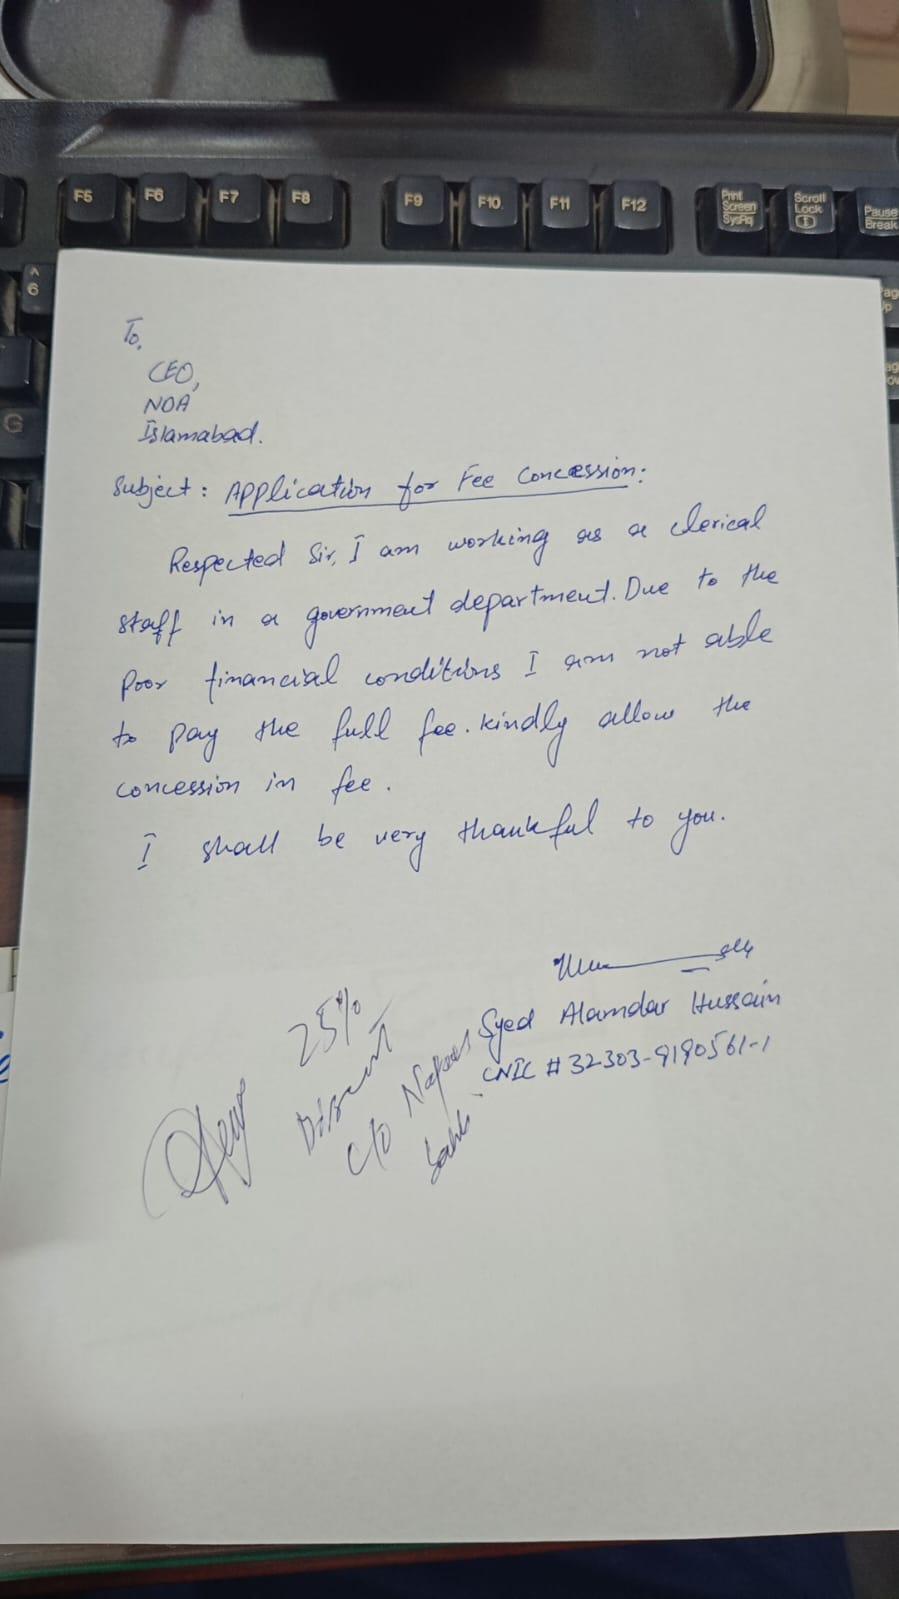 F5 F6 F7 F8 F9 F10 F11 F12 Print Screen SysRq Scroll Lock Pause Break
^ 6
G
To,
CEO,
NOA
Islamabad.
Subject: Application for Fee Concession:
Respected Sir, I am working as a clerical
staff in a government department. Due to the
poor financial conditions I am not able
to pay the full fee. kindly allow the
concession in fee.
I shall be very thankful to you.
Syed Alamdar Hussain
CNIC # 32303-9190561-1
25%
Discount
C/O Nafees
Sahb